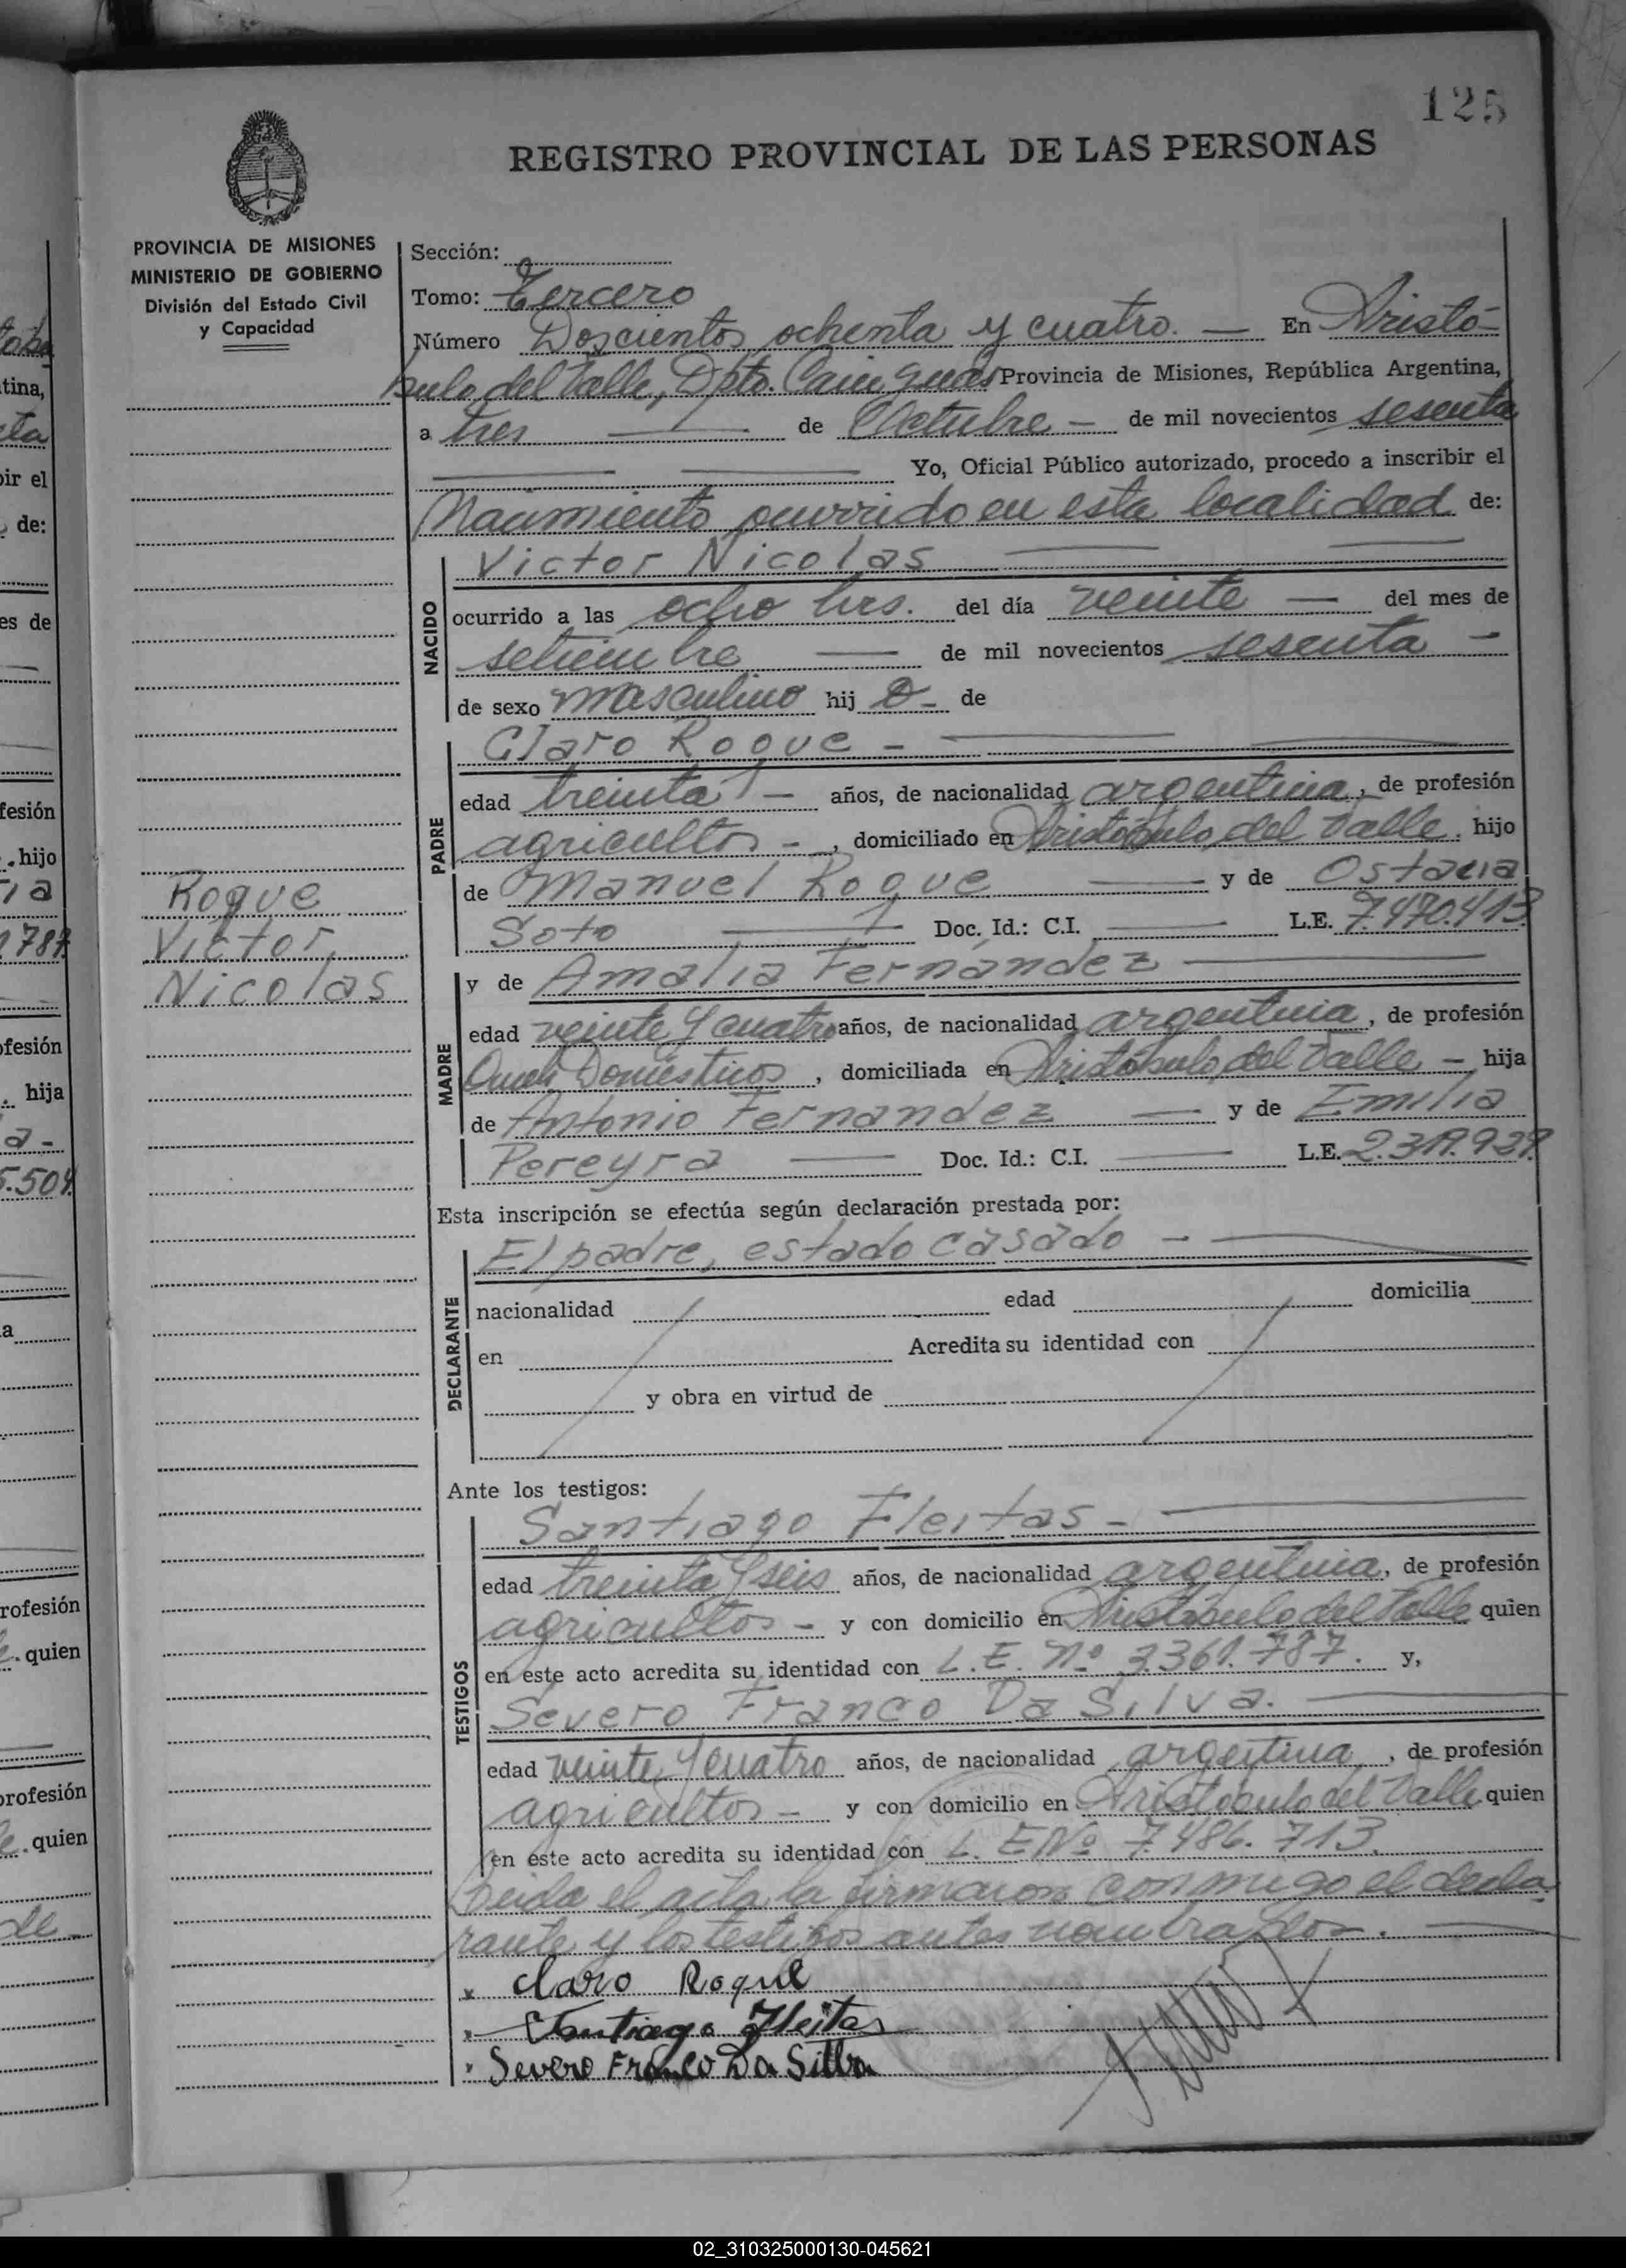 125
REGISTRO PROVINCIAL DE LAS PERSONAS
PROVINCIA DE MISIONES
MINISTERIO DE GOBIERNO
División del Estado Civil
y Capacidad
Sección:
Tomo: Tercero
Número Doscientos ochenta y cuatro. — En Aristó-
bulo del Valle, Dpto. Cainguas Provincia de Misiones, República Argentina,
a tres — de Octubre — de mil novecientos sesenta
Yo, Oficial Público autorizado, procedo a inscribir el
Nacimiento ocurrido en esta localidad de:
NACIDO
Victor Nicolas
ocurrido a las ocho hrs. del día veinte — del mes de
setiembre — de mil novecientos sesenta —
de sexo masculino hij o- de
PADRE
Claro Roque -
edad treinta - años, de nacionalidad argentina, de profesión
agricultor - , domiciliado en Aristóbulo del Valle. hijo
de Manuel Roque — y de Ostacia
Soto — Doc. Id.: C.I. — L.E. 7.470.413
Roque
Victor,
Nicolas
MADRE
y de Amalia Fernández
edad veinte y cuatro años, de nacionalidad argentina, de profesión
Domésticos, domiciliada en Aristóbulo del Valle - hija
de Antonio Fernandez — y de Emilia
Pereyra — Doc. Id.: C.I. — L.E.
Esta inscripción se efectúa según declaración prestada por:
DECLARANTE
El padre, estado casado -
nacionalidad edad domicilia
en Acredita su identidad con
y obra en virtud de
Ante los testigos:
TESTIGOS
Santiago Fleitas -
edad treinta y seis años, de nacionalidad argentina, de profesión
agricultor - y con domicilio en Aristóbulo del Valle quien
en este acto acredita su identidad con L.E. Nº 3.361.787. y,
Severo Franco Da Silva.
edad veinte y cuatro años, de nacionalidad argentina, de profesión
agricultor - y con domicilio en Aristóbulo del Valle quien
en este acto acredita su identidad con L. E Nº 7.486.713.
Leida el acta la firmaron conmigo el decla-
rante y los testigos antes nombrados.
Claro Roque
Santiago Fleitas
Severo Franco Da Silba
02_310325000130-045621